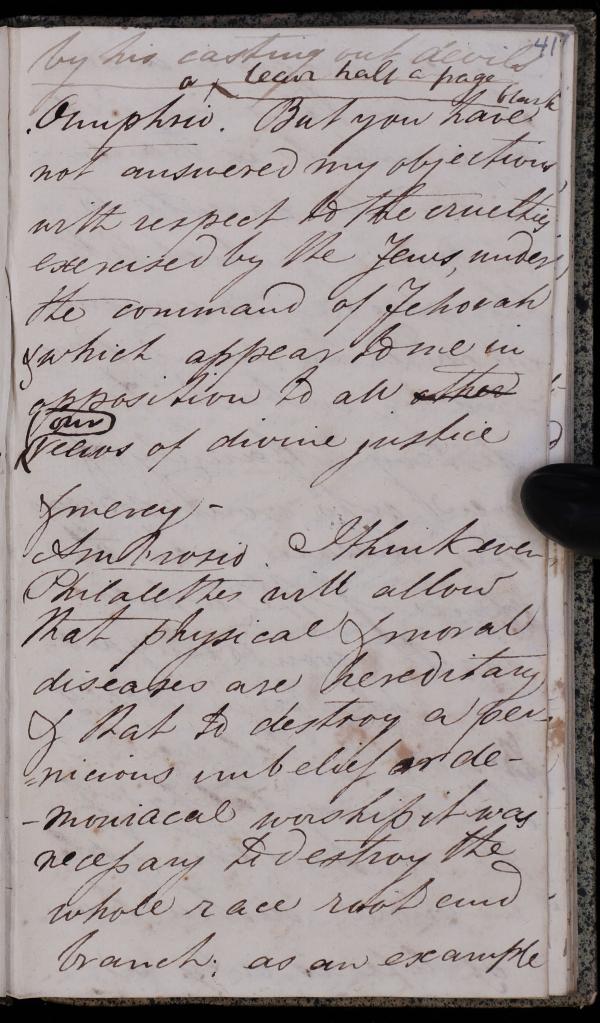 41
by his casting out devils
a leave half a page
blank
Onuphrio. But you have
not answered my objections,
with respect to the cruelties
exercised by the Jews, under
the command of Jehovah
& which appear to me in
opposition to all other
our
views of divine justice
& mercy -
Ambrosio. I think even
Philalethes will allow
that physical & moral
diseases are hereditary
& that to destroy a per-
=nicious unbelief or de-
-moniacal worship it was
necessary to destroy the
whole race root and
branch; as an example